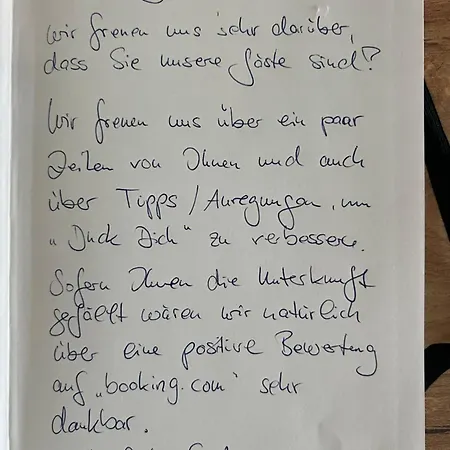 wir freuen uns sehr darüber,
dass Sie unsere Gäste sind?
Wir freuen uns über ein paar
Zeilen von Ihnen und auch
über Tipps / Anregungen, um
„Duck Dich“ zu verbessern.
Sofern Ihnen die Unterkunft
gefällt wären wir natürlich
über eine positive Bewertung
auf „booking.com“ sehr
dankbar.